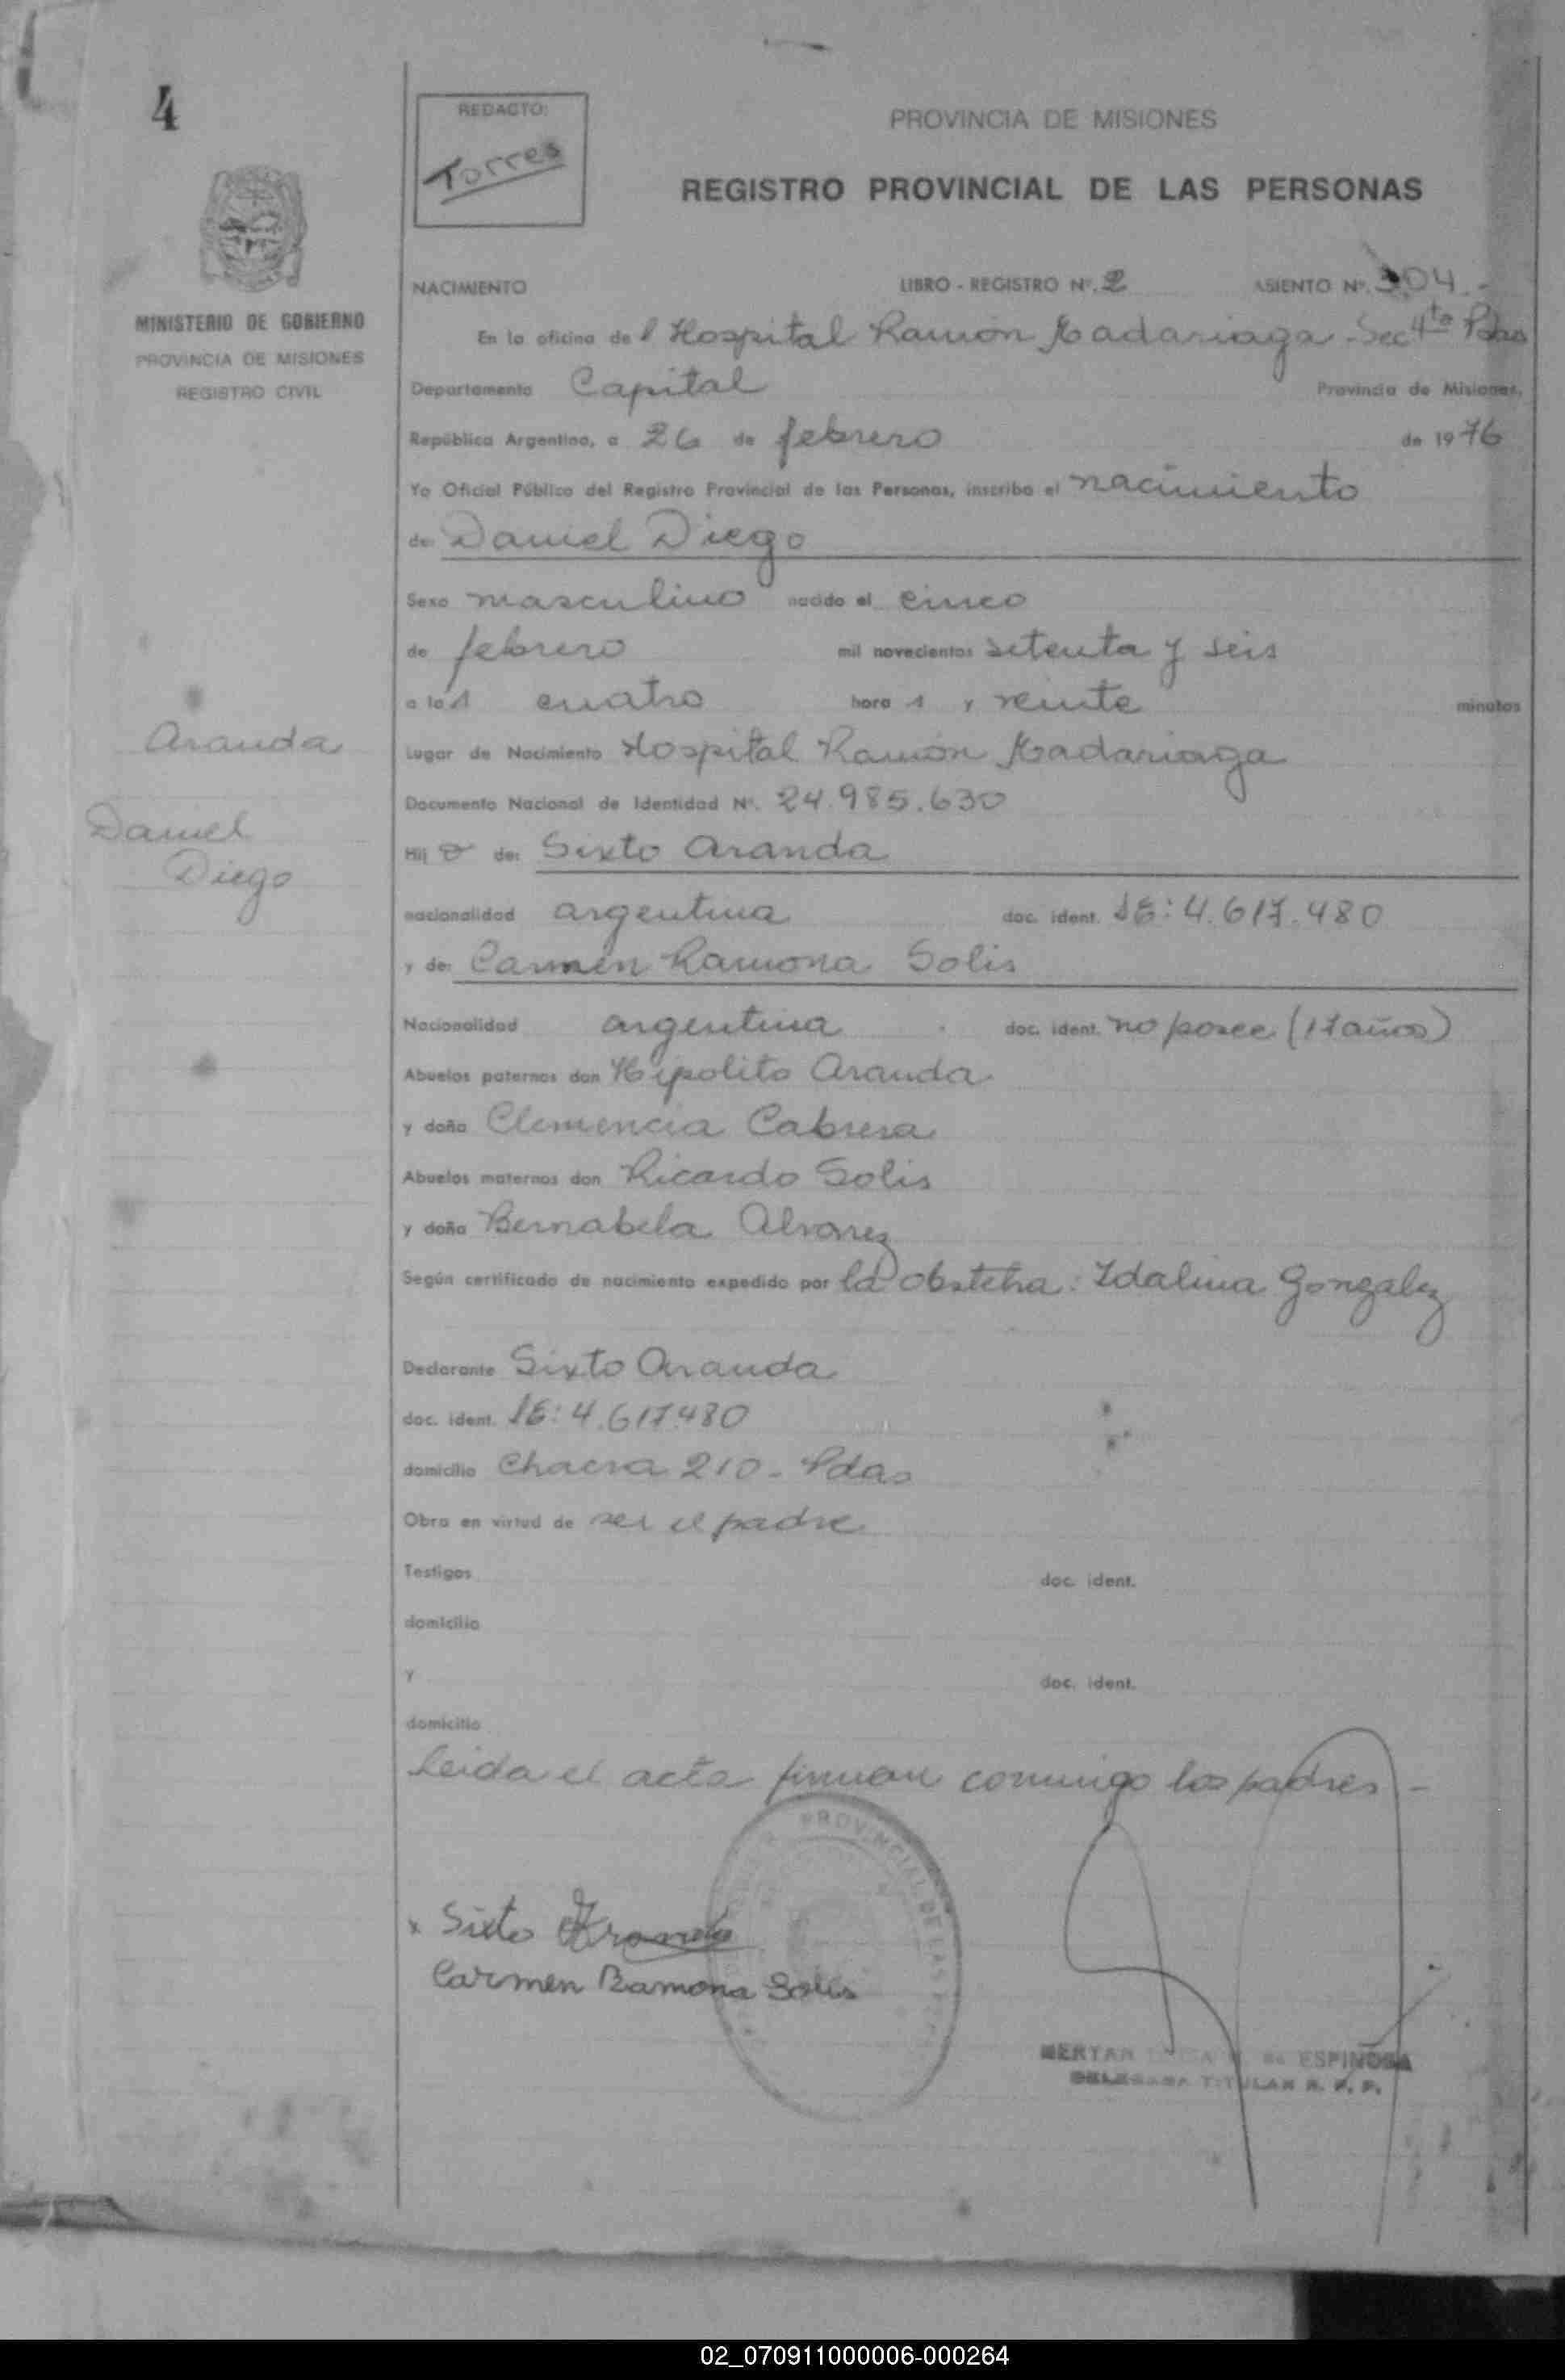 4
REDACTO:
Torres
PROVINCIA DE MISIONES
REGISTRO PROVINCIAL DE LAS PERSONAS
MINISTERIO DE GOBIERNO
PROVINCIA DE MISIONES
REGISTRO CIVIL
NACIMIENTO LIBRO - REGISTRO Nº. 2 ASIENTO Nº. 304.-
En la oficina del Hospital Ramón Madariaga - Sec 4ta Pdas
Departamento Capital Provincia de Misiones,
República Argentina, a 26 de febrero de 1976
Yo Oficial Público del Registro Provincial de las Personas, inscribo el nacimiento
de Daniel Diego
Sexo masculino nacido el cinco
de febrero mil novecientos setenta y seis
a las cuatro horas y veinte minutos
Aranda
Lugar de Nacimiento Hospital Ramón Madariaga
Documento Nacional de Identidad Nº. 24.985.630
Daniel
Diego
Hijo de: Sixto Aranda
nacionalidad argentina doc. ident. LE: 4.617.480
y de: Carmen Ramona Solis
Nacionalidad argentina doc. ident. no posee (17 años)
Abuelos paternos don Hipolito Aranda
y doña Clemencia Cabrera
Abuelos maternos don Ricardo Solis
y doña Bernabela Alvarez
Según certificado de nacimiento expedido por la Obstetra: Idalina Gonzalez
Declarante Sixto Aranda
doc. ident. LE: 4.617.480
domicilio Chacra 210 - Pdas
Obra en virtud de ser el padre
Testigos doc. ident.
domicilio
y doc. ident.
domicilio
Leida el acta firman conmigo los padres -
PROVINCIAL DE LAS
x Sixto Aranda
Carmen Ramona Solis
ESPINOSA
DELEGADA TITULAR R. P. P.
02_070911000006-000264